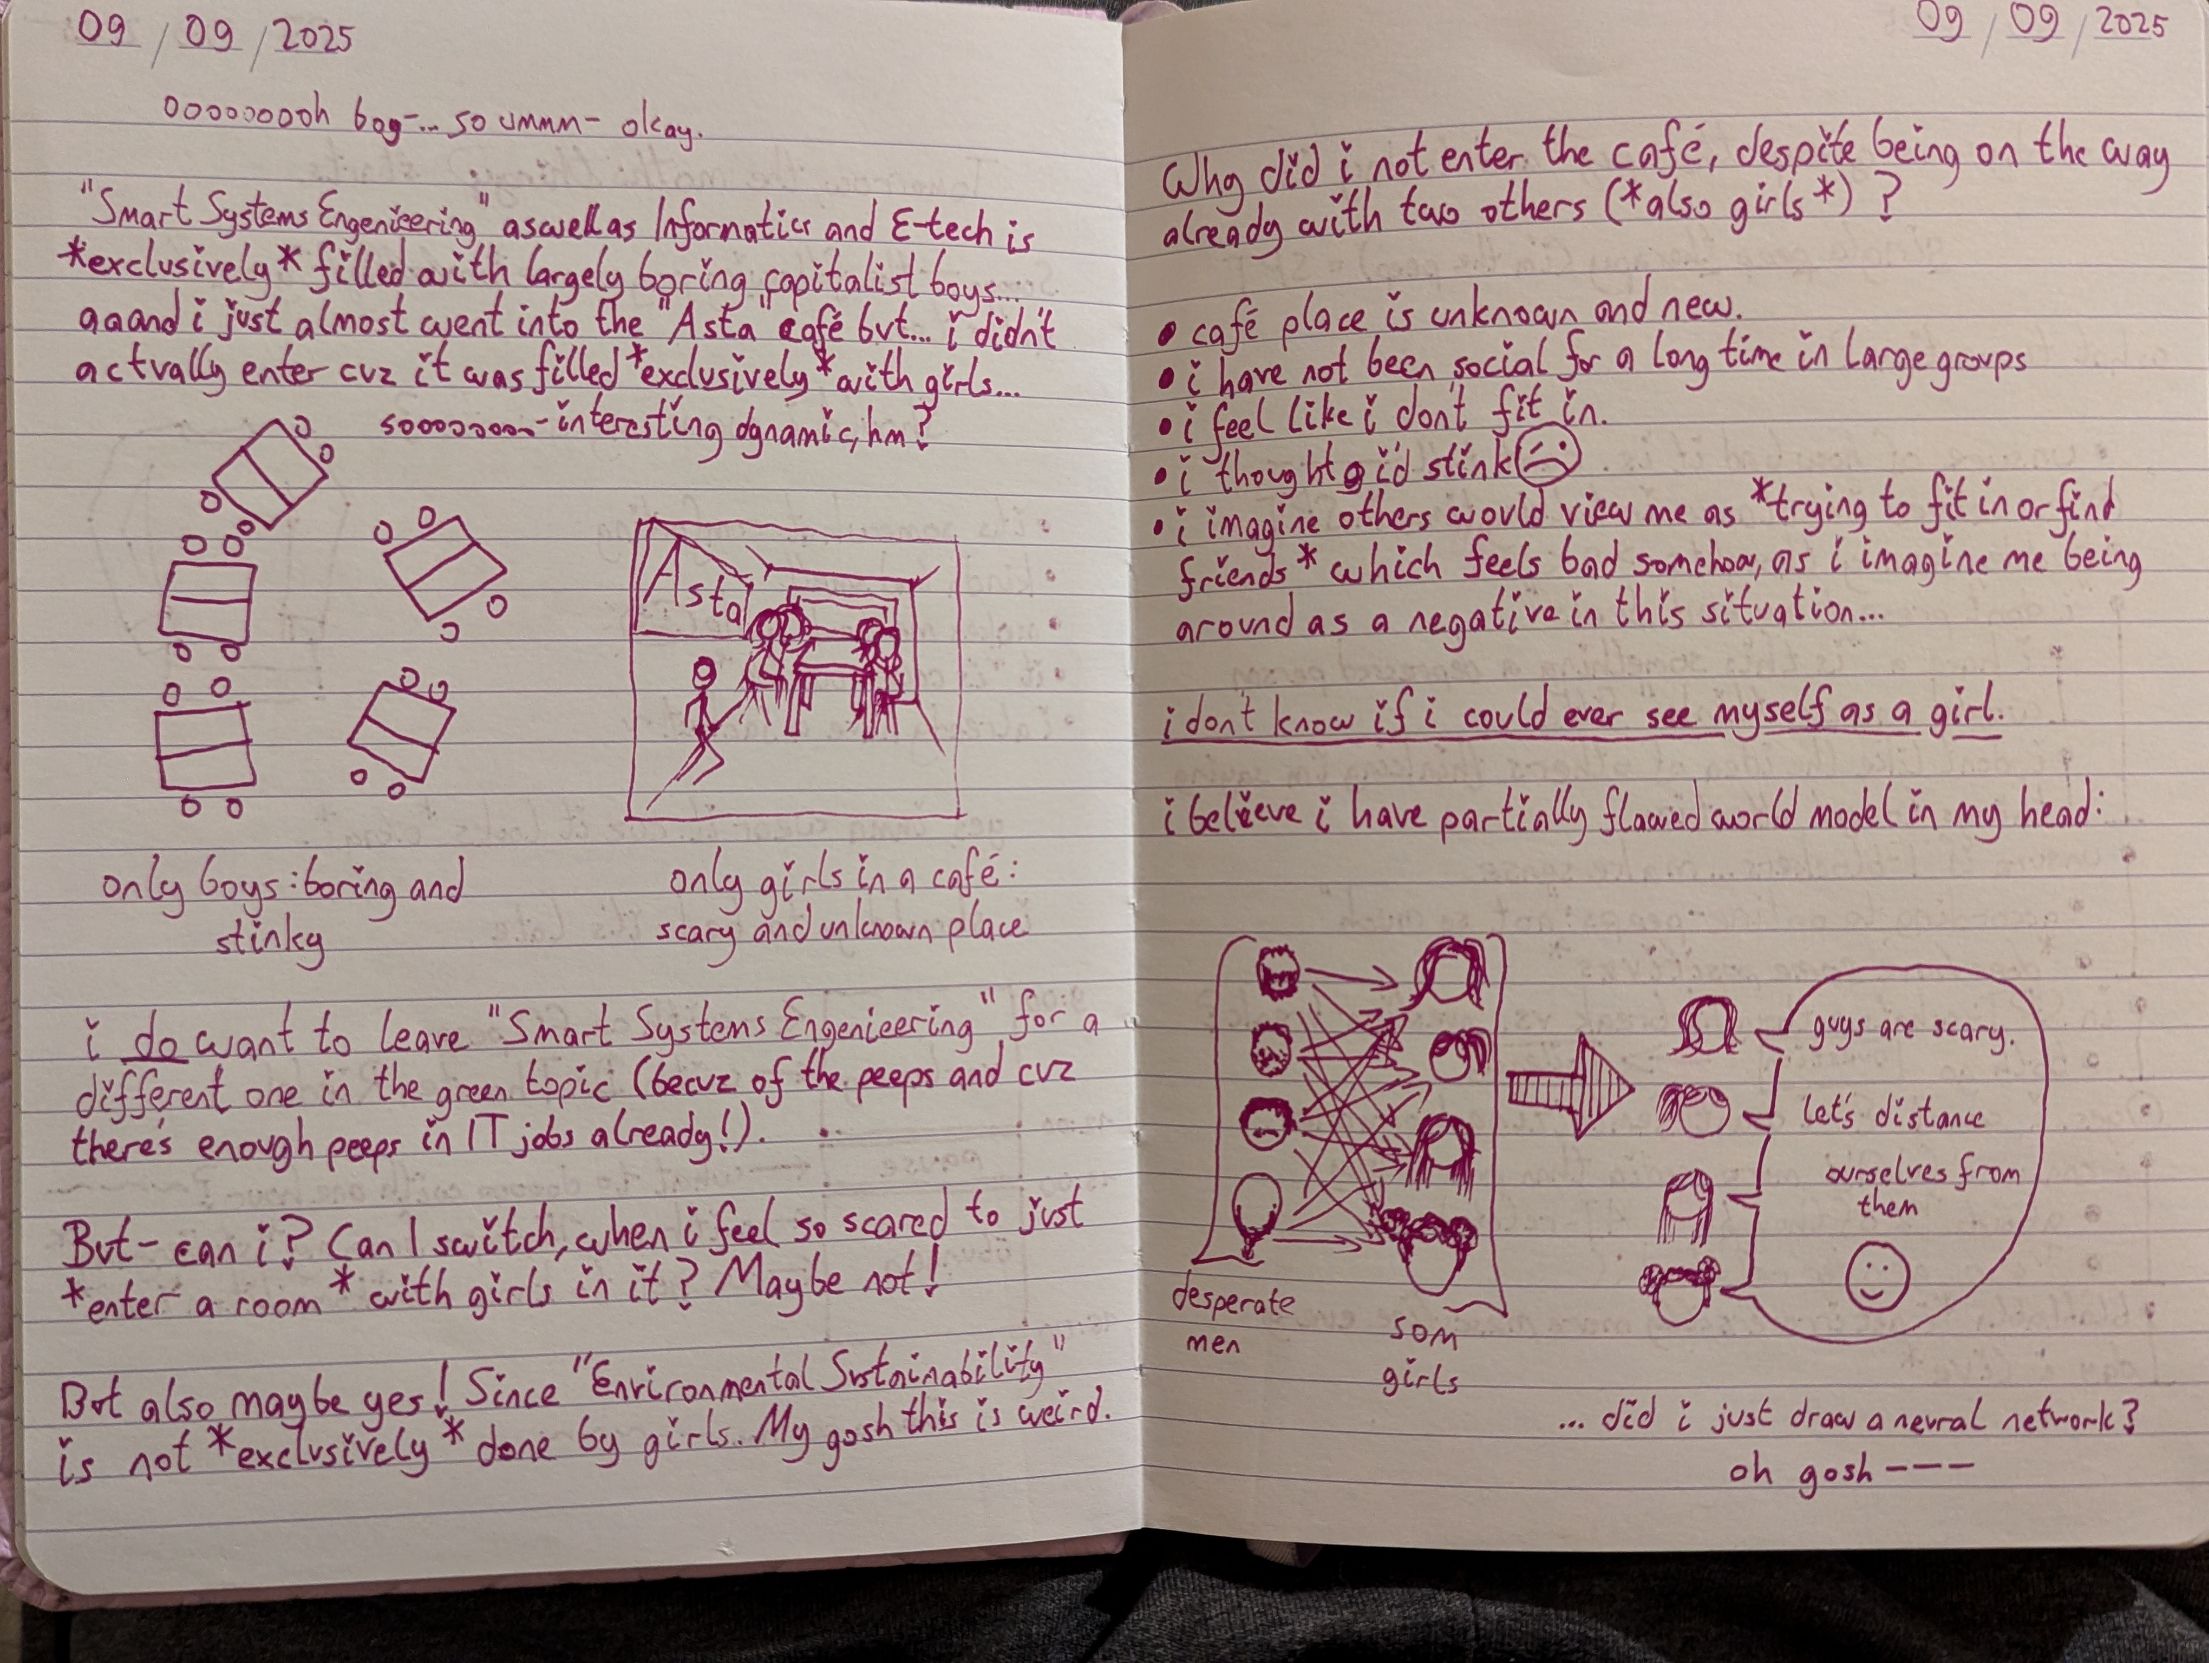 09 / 09 / 2025
ooooooooh boy-... so ummm- okay.
"Smart Systems Engenieering" aswell as Informatics and E-tech is
*exclusively* filled with largely boring capitalist boys...
aaand i just almost went into the "Asta" café but... i didn't
actually enter cuz it was filled *exclusively* with girls...
sooooooooo- interesting dynamic, hm?
Asta
only boys: boring and
stinky
only girls in a café:
scary and unknown place
i do want to leave "Smart Systems Engenieering" for a
different one in the green topic (becuz of the peeps and cuz
there's enough peeps in IT jobs already!).
But- can i? Can I switch, when i feel so scared to just
*enter a room* with girls in it? Maybe not!
But also maybe yes! Since "Environmental Sustainability"
is not *exclusively* done by girls. My gosh this is weird.
09 / 09 / 2025
Why did i not enter the café, despite being on the way
already with two others (*also girls*) ?
• café place is unknown and new.
• i have not been social for a long time in large groups
• i feel like i don't fit in.
• i thought i'd stink
• i imagine others would view me as *trying to fit in or find
friends* which feels bad somehow, as i imagine me being
around as a negative in this situation...
i don't know if i could ever see myself as a girl.
i believe i have partially flawed world model in my head:
desperate
men
som
girls
guys are scary.
let's distance
ourselves from
them
... did i just draw a neural network?
oh gosh ---